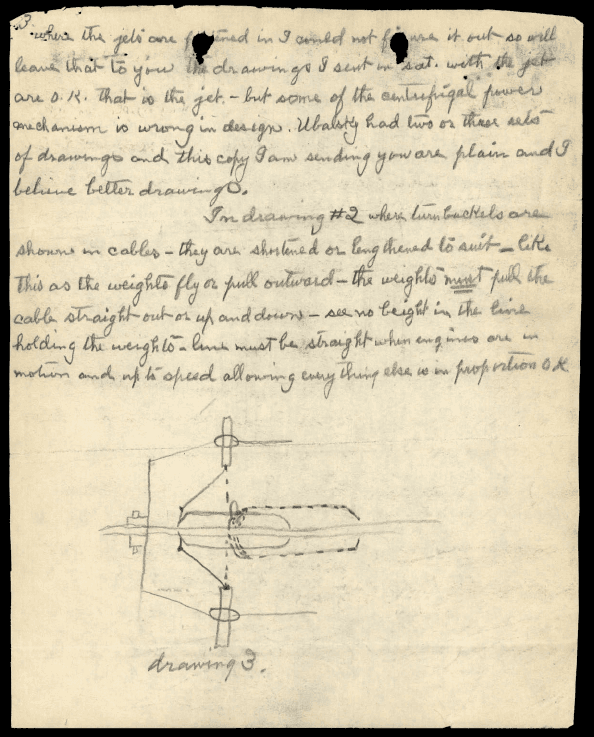 3
where the jets are fastened in I could not figure it out so will
leave that to you the drawings I sent in sat. with the jet
are O.K. that is the jet. - but some of the centrifigal power
mechanism is wrong in design. Ubalsky had two or three sets
of drawings and this copy I am sending you are plain and I
believe better drawings.
In drawing #2 where turnbuckels are
shown in cables - they are shortened or lengthened to suit - like
this as the weights fly or pull outward - the weights must pull the
cable straight out or up and down - see no beight in the line
holding the weights - line must be straight when engines are in
motion and up to speed allowing every thing else is in proportion O.K
drawing 3.